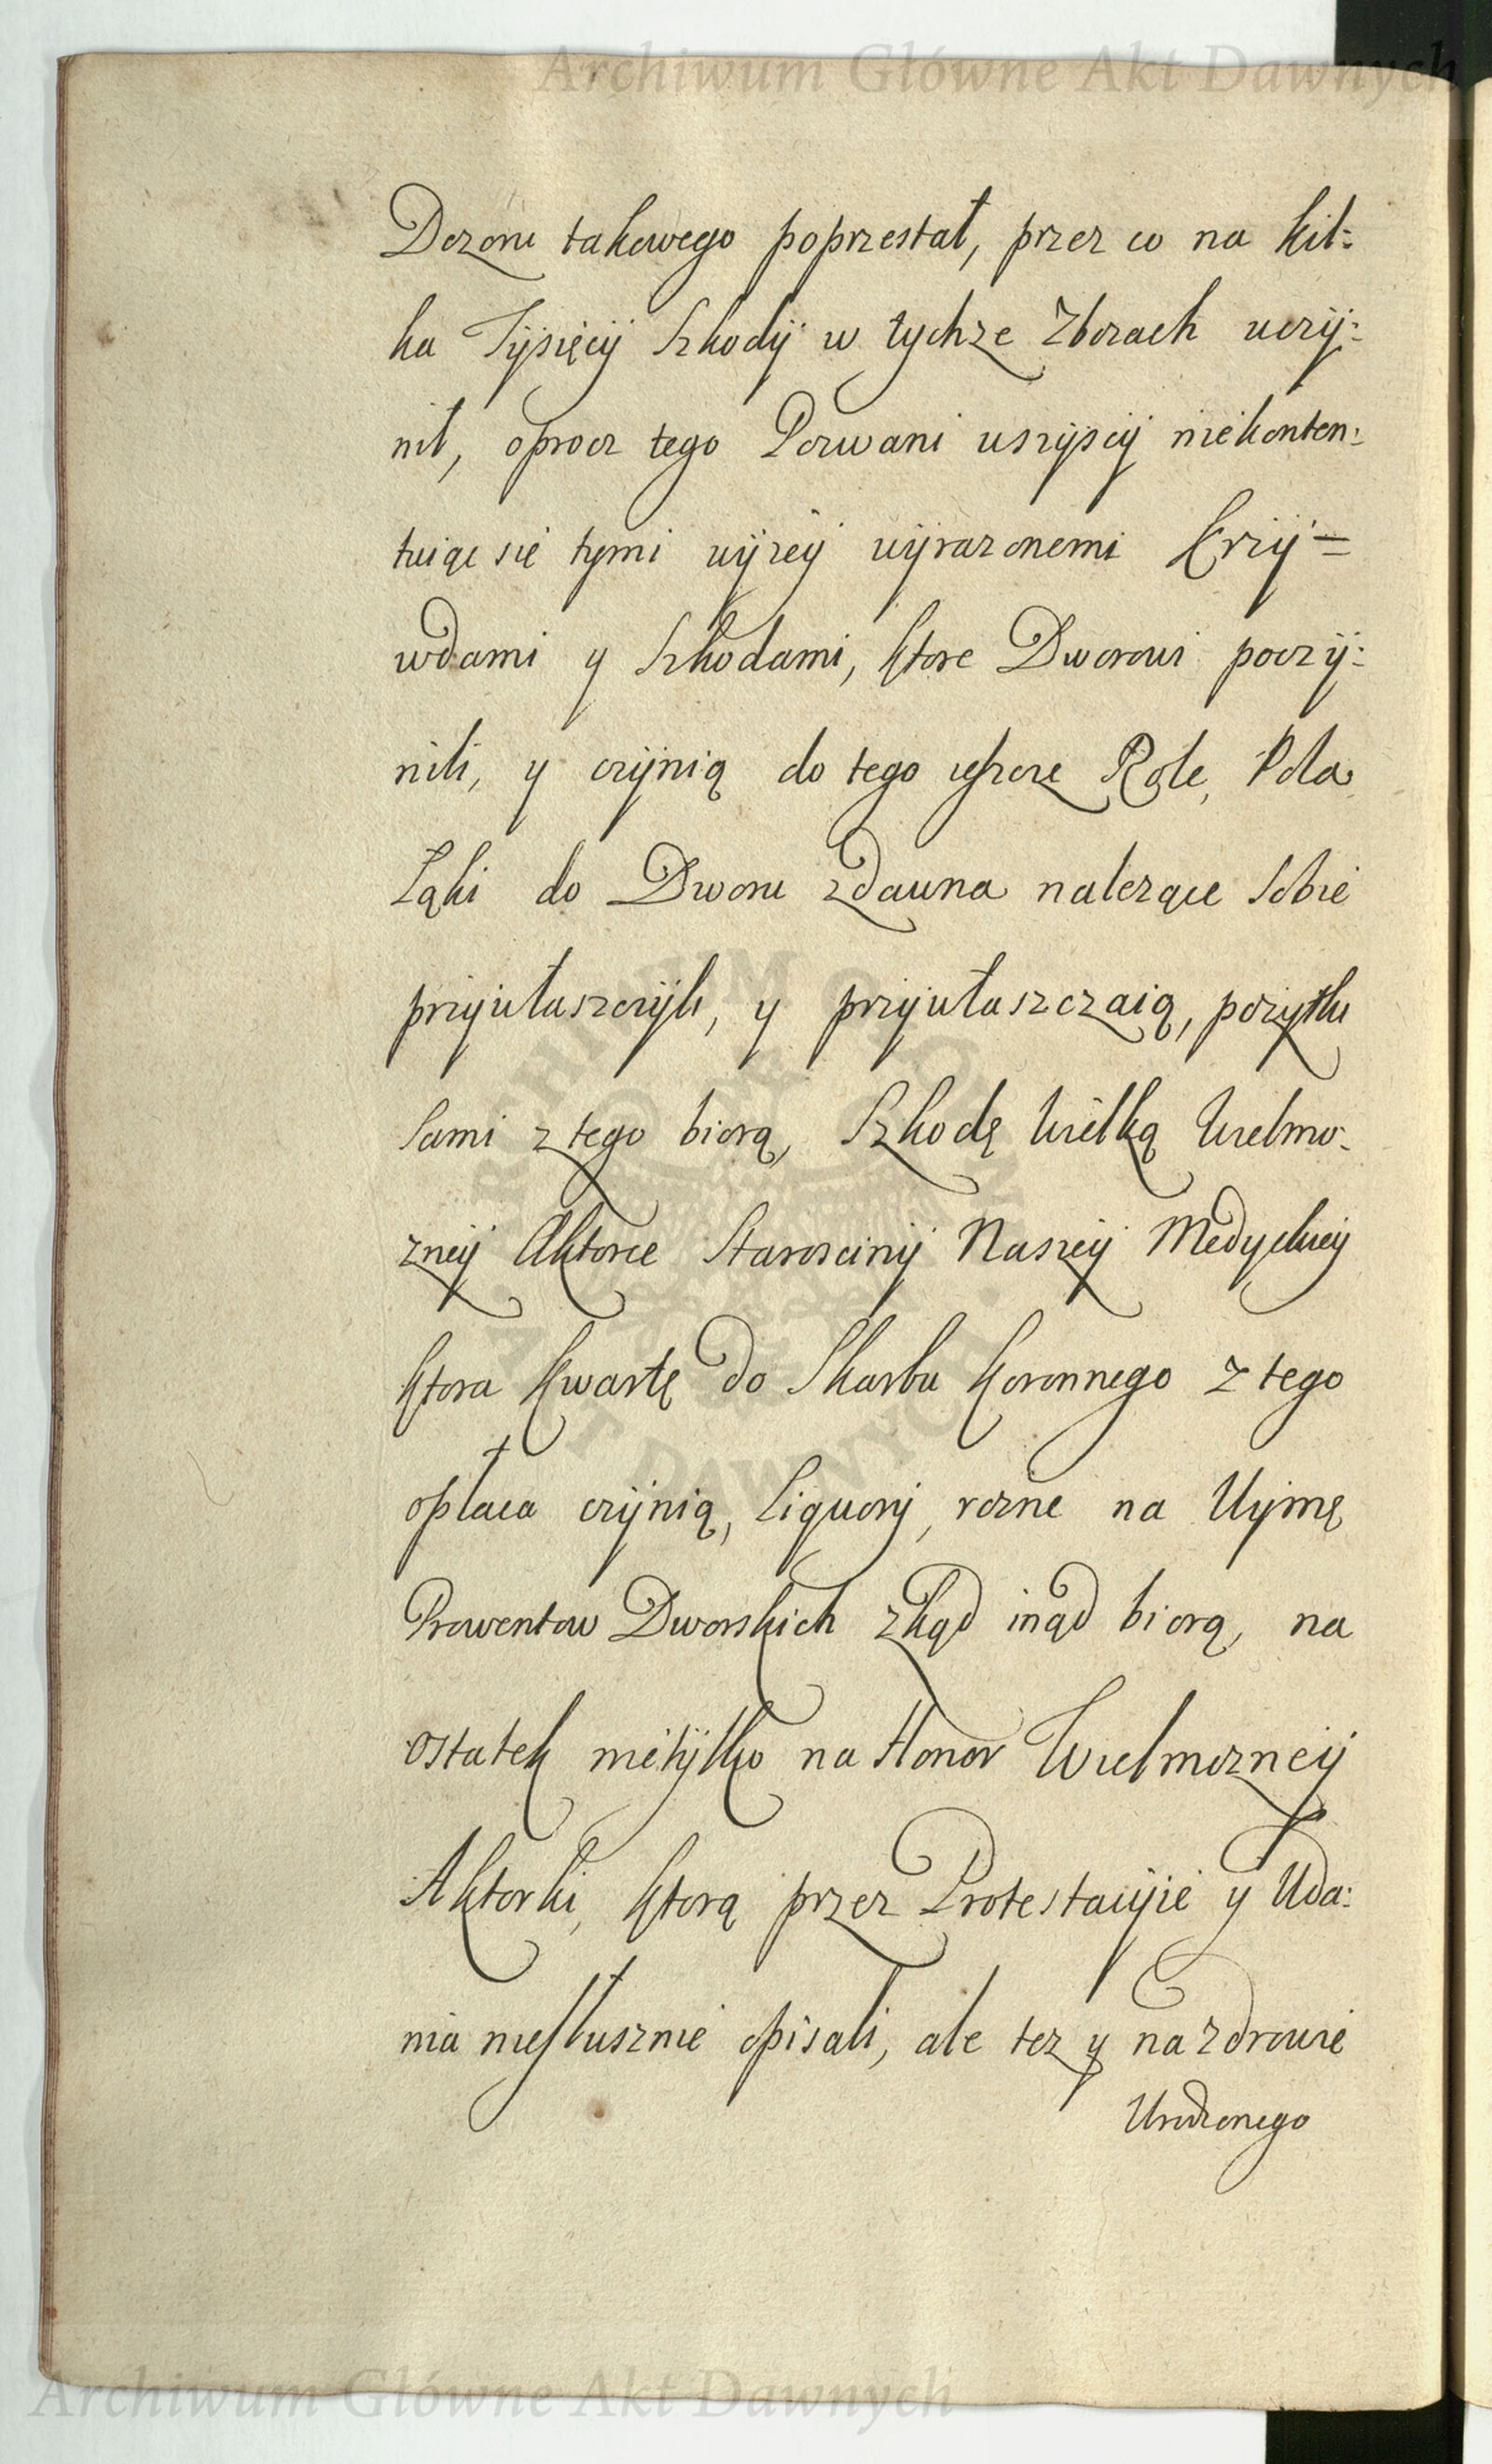 Archiwum Główne Akt Dawnych
Dozoru takowego poprzestał, przez co na kil:
ka Tysięcy Szkody w tychze Zborach uczy:
nił, oprocz tego Pozwani wszyscy niekonten:
tuiąc się tymi wyzey wyrazonemi Krzy=
wdami y Szkodami, ktore Dworowi poczy:
nili, y czynią do tego ieszcze Role, Pola
Łąki do Dworu zdawna nalezące sobie
przywłaszczyli, y przywłaszczaią, pozytki
sami z tego biorą, Szkodę Wielką Wielmo:
zney Aktorce Starościny Naszey Medyckiey
ktora kwartę do Skarbu Koronnego z tego
opłaca czynią, Liquory, rozne na Uymę
Prowentow Dworskich zkąd inąd biorą, na
ostatek nietylko na Honor Wielmozney
Aktorki, ktorą przez Protestacyie y Uda:
nia niesłusznie opisali, ale tez y na zdrowie
Urodzonego
ARCHIWUM GŁÓWNE AKT DAWNYCH
Archiwum Główne Akt Dawnych